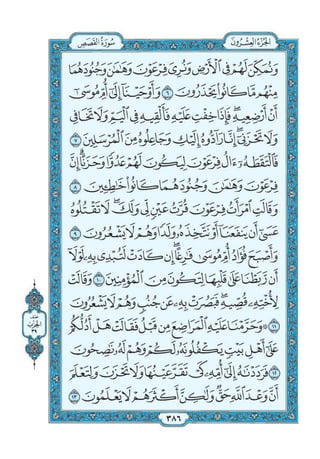 الجُزْءُ العِشْرُونَ
سُورَةُ القَصَصِ
وَنُمَكِّنَ لَهُمْ فِى ٱلْأَرْضِ وَنُرِىَ فِرْعَوْنَ وَهَٰمَٰنَ وَجُنُودَهُمَا
مِنْهُم مَّا كَانُوا۟ يَحْذَرُونَ ٦ وَأَوْحَيْنَآ إِلَىٰٓ أُمِّ مُوسَىٰٓ
أَنْ أَرْضِعِيهِ فَإِذَا خِفْتِ عَلَيْهِ فَأَلْقِيهِ فِى ٱلْيَمِّ وَلَا تَخَافِى
وَلَا تَحْزَنِىٓ إِنَّا رَآدُّوهُ إِلَيْكِ وَجَاعِلُوهُ مِنَ ٱلْمُرْسَلِينَ ٧
فَٱلْتَقَطَهُۥٓ ءَالُ فِرْعَوْنَ لِيَكُونَ لَهُمْ عَدُوًّا وَحَزَنًا إِنَّ
فِرْعَوْنَ وَهَٰمَٰنَ وَجُنُودَهُمَا كَانُوا۟ خَٰطِـِٔينَ ٨
وَقَالَتِ ٱمْرَأَتُ فِرْعَوْنَ قُرَّتُ عَيْنٍ لِّى وَلَكَ لَا تَقْتُلُوهُ
عَسَىٰٓ أَن يَنفَعَنَآ أَوْ نَتَّخِذَهُۥ وَلَدًا وَهُمْ لَا يَشْعُرُونَ ٩
وَأَصْبَحَ فُؤَادُ أُمِّ مُوسَىٰ فَٰرِغًا إِن كَادَتْ لَتُبْدِى بِهِۦ لَوْلَآ
أَن رَّبَطْنَا عَلَىٰ قَلْبِهَا لِتَكُونَ مِنَ ٱلْمُؤْمِنِينَ ١٠ وَقَالَتْ
لِأُخْتِهِۦ قُصِّيهِ فَبَصُرَتْ بِهِۦ عَن جُنُبٍ وَهُمْ لَا يَشْعُرُونَ
١١ ۞ وَحَرَّمْنَا عَلَيْهِ ٱلْمَرَاضِعَ مِن قَبْلُ فَقَالَتْ هَلْ أَدُلُّكُمْ
عَلَىٰٓ أَهْلِ بَيْتٍ يَكْفُلُونَهُۥ لَكُمْ وَهُمْ لَهُۥ نَٰصِحُونَ
١٢ فَرَدَدْنَٰهُ إِلَىٰٓ أُمِّهِۦ كَىْ تَقَرَّ عَيْنُهَا وَلَا تَحْزَنَ وَلِتَعْلَمَ
أَنَّ وَعْدَ ٱللَّهِ حَقٌّ وَلَٰكِنَّ أَكْثَرَهُمْ لَا يَعْلَمُونَ ١٣
نصف
الحزب
٣٩
٣٨٦